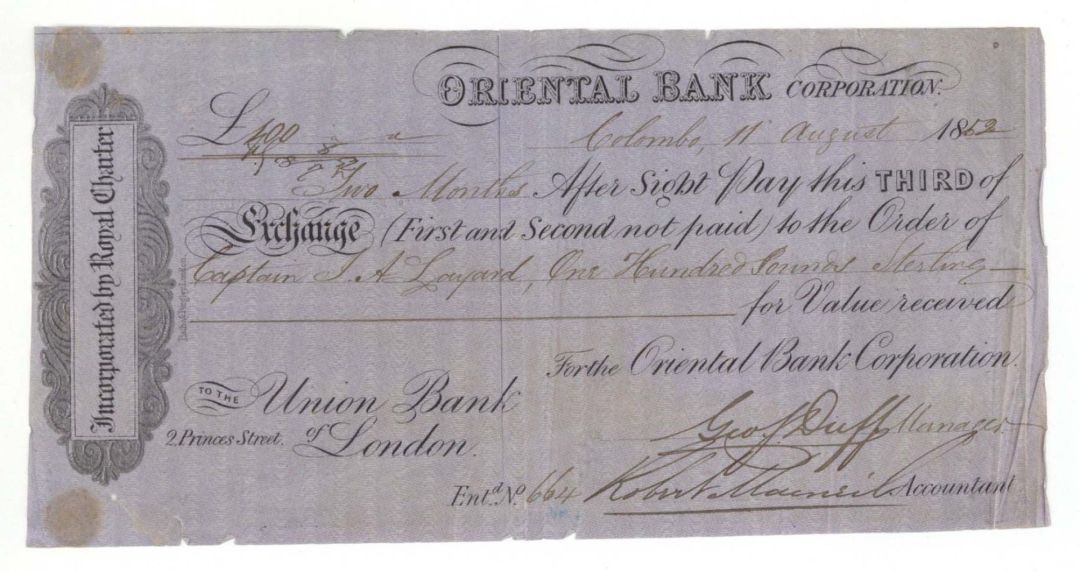 ORIENTAL BANK CORPORATION.
£100
Colombo, 11 August 1852
Two Months After Sight Pay this THIRD of
Exchange (First and Second not paid) to the Order of
Captain F. A. Layard, One Hundred Pounds Sterling
for Value received
For the Oriental Bank Corporation.
Incorporated by Royal Charter
TO THE Union Bank
2, Princes Street. of London.
Geo. J. Duff Manager
Ent.d No. 664 Robert Macneil Accountant